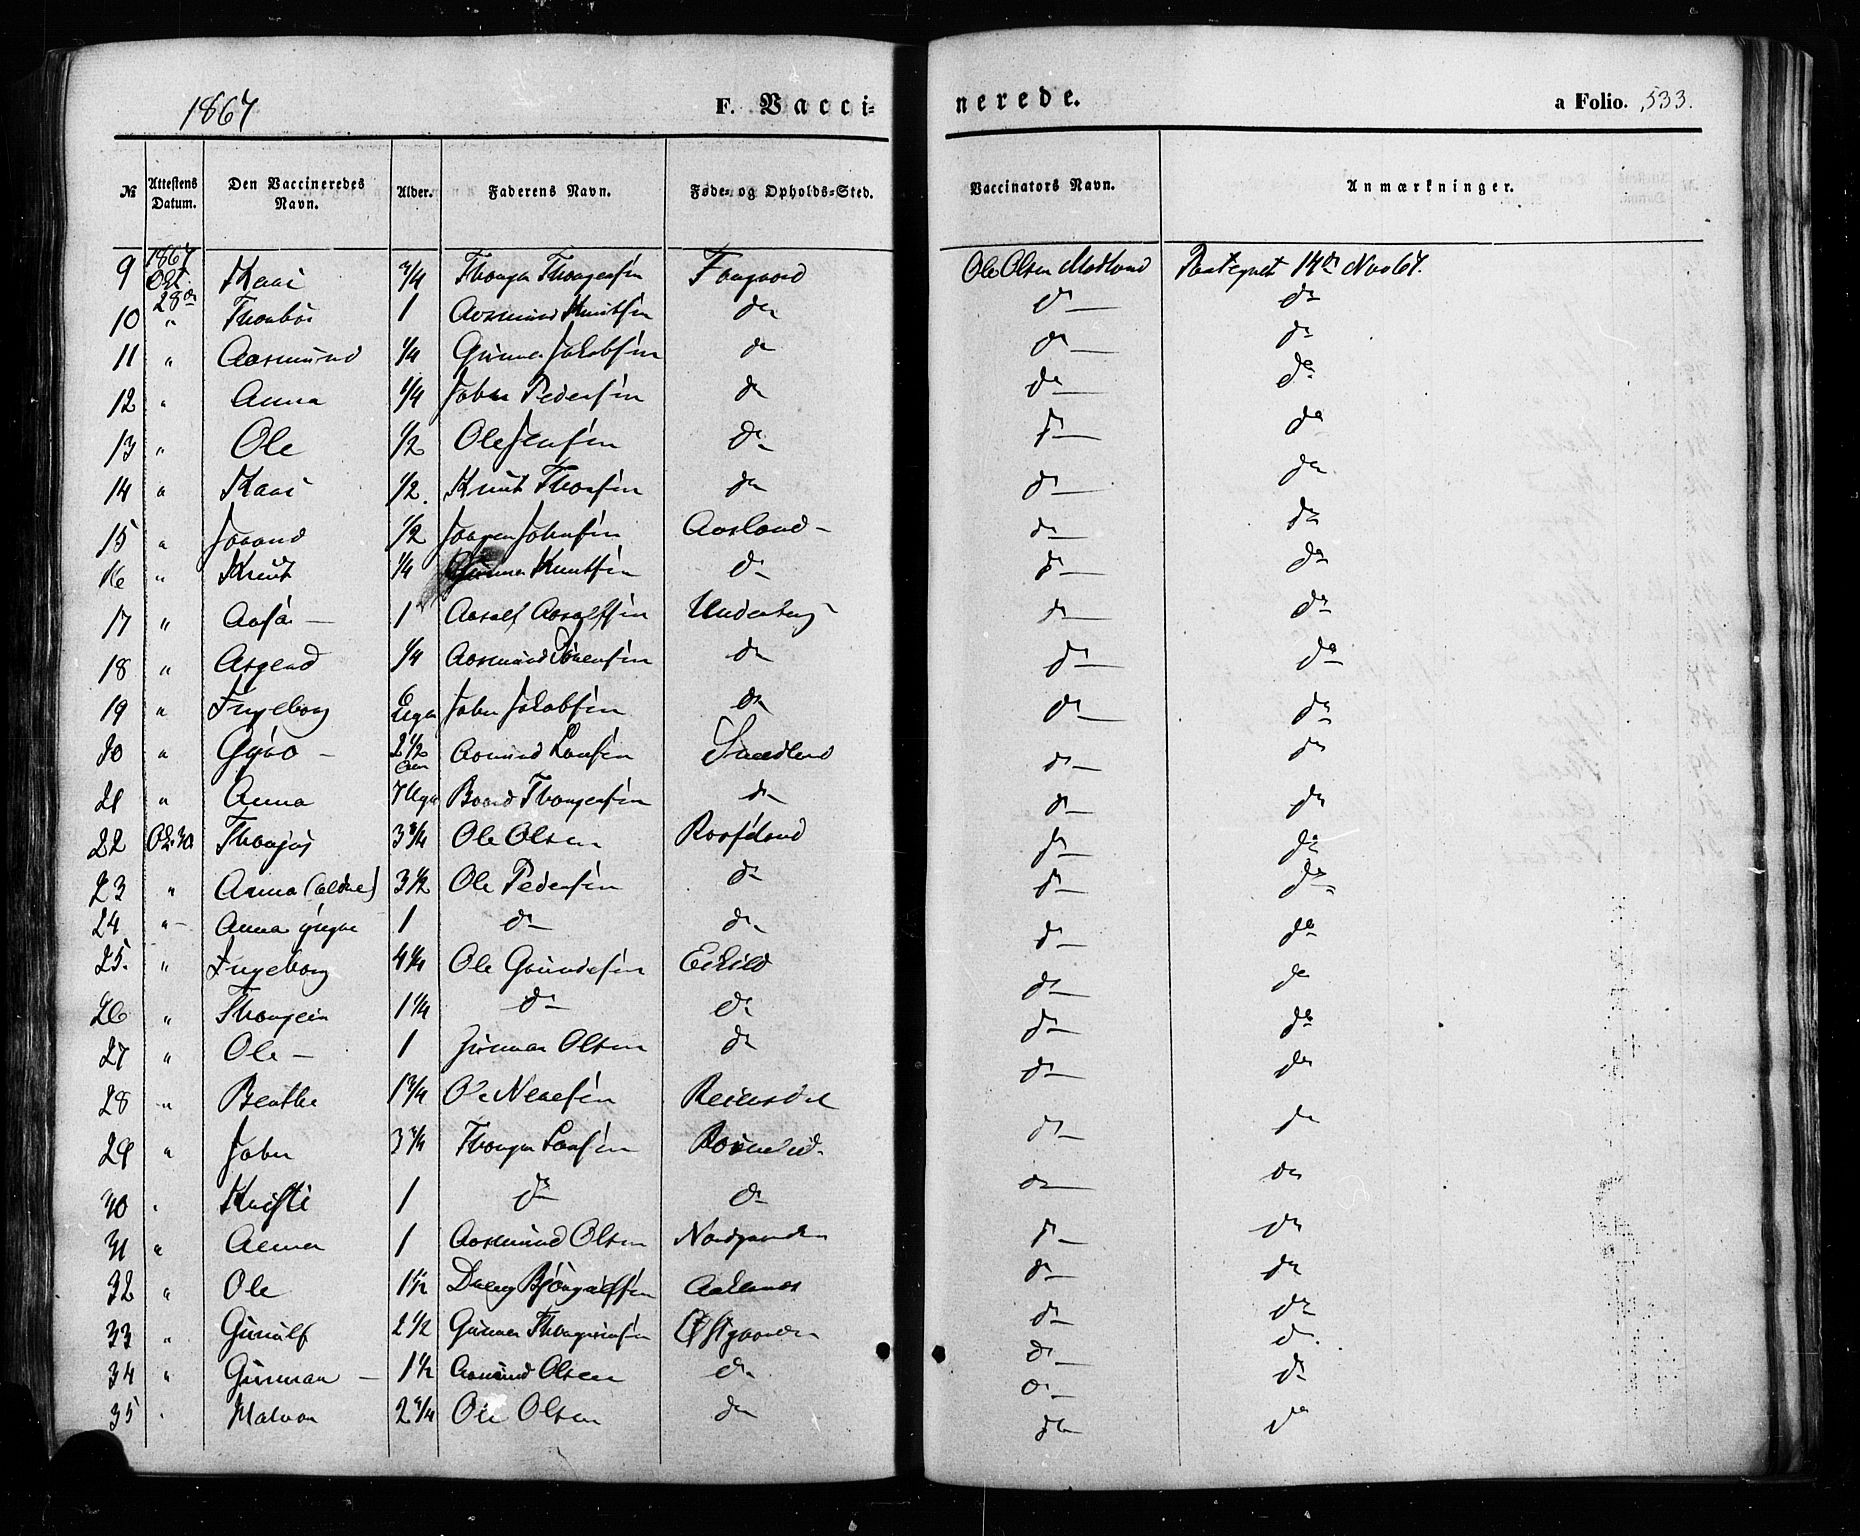 1867 F. Vacci- nerede. a Folio. 533.
№ Attestens Datum. Den Vaccineredes Navn. Alder. Faderens Navn. Føde- og Opholds-Sted. Vaccinators Navn. Anmærkninger.
9 1867 Oct. 28de Kari 3/4 Thorger Thorgersen Ole Olsen Modland 14de Nov 67.
10 " Thorbør 1 Aasmund Knutsen do do do
11 " Aasmund 1/4 Gunner Jakobsen do do do
12 " Anna 1/4 John Pedersen do do do
13 " Ole 1/2 Ole Jensen do do do
14 " Kari 1/2. Knut Thorsen do do do
15 " Jorand 1/2 Jørgen Johnsen Aasland – do do
16 " Knut 1/4 Gunner Knutsen do do do
17 " 1 Underberg do do
18 " Asgerd 1/4 Aasmund do do do
19 " Ingeborg Uger John Jakobsen do do do
20 " Gyro – 2 1/2 Aar Asmund Larsen do do
21 " Anna 7 Uger Baard Thorgersen do do do
22 Oct. 30. Thorgius 3 3/4 Ole Olsen do do
23 " Anna (ældre) 3 1/2 Ole Pedersen do do do
24 " Anna yngre 1 do do do do
25. " Ingeborg 4 1/4 Ole Gundersen Eikild do do
26 " 1 1/4 do do do do
27 " Ole – 1 Gunnar Olsen do do do
28 " Berthe 1 3/4 Ole do do
29 " John 3 3/4 Thorger Larsen do do
30 " Kristi 1 do do do do
31 " Anna 1 Aasmund Olsen Nordgarden do do
32 " Ole 1 1/2 Bjørgulfsen do do
33 " Gunulf 2 1/2 Gunner Thorgrimsen Østgaarden do do
34 " Gunnar – 1 1/2 Asmund Olsen do do do
35 " Halvor 2 3/4 Ole Olsen do do do